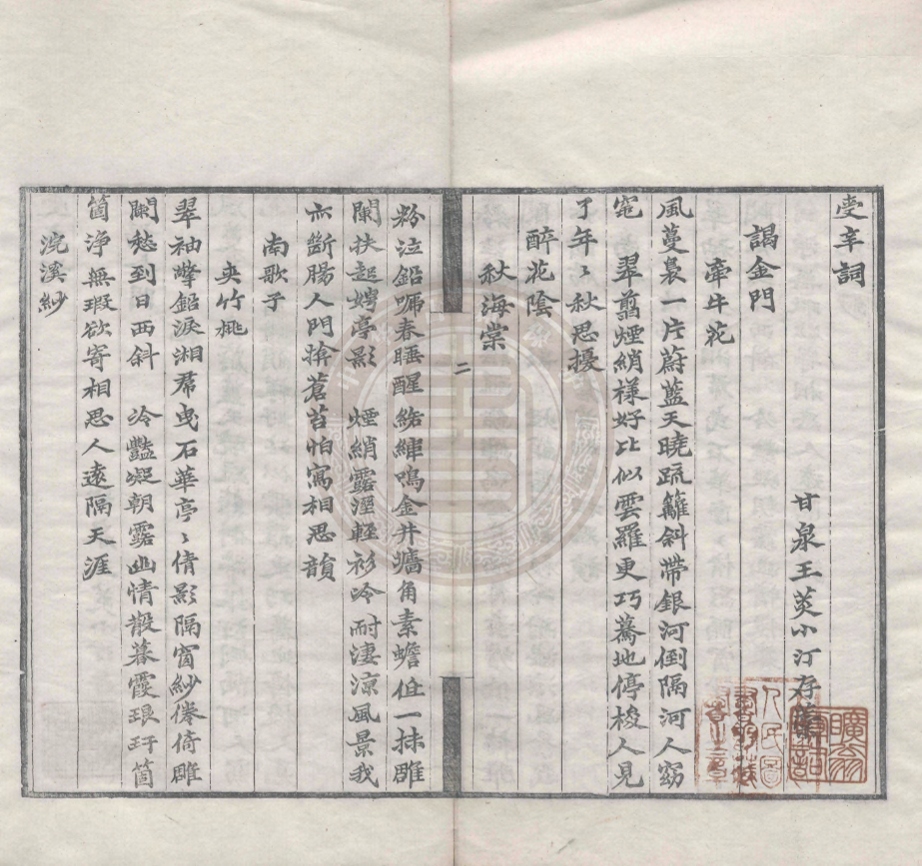 受辛詞
甘泉王菼小汀存藁
謁金門
牽牛花
風蔓裊一片蔚藍天曉疏籬斜帶銀河倒隔河人窈
窕　翠翦煙綃樣好比似雲羅更巧驀地停梭人見
了年〻秋思擾
醉花陰
秋海棠
二
粉泣鉛嚬春睡醒絡緯鳴金井牆角素蟾低一抹雕
闌扶起娉亭影　煙綃露溼輕衫冷耐淒涼風景我
亦斷腸人門揜蒼苔怕寫相思韻
南歌子
夾竹桃
翠袖擎鉛淚湘帬曳石華亭〻倩影隔窗紗僽倚雕
闌愁到日西斜　冷豔凝朝露幽情殿暮霞琅玕箇
箇淨無瑕欲寄相思人遠隔天涯
浣溪紗